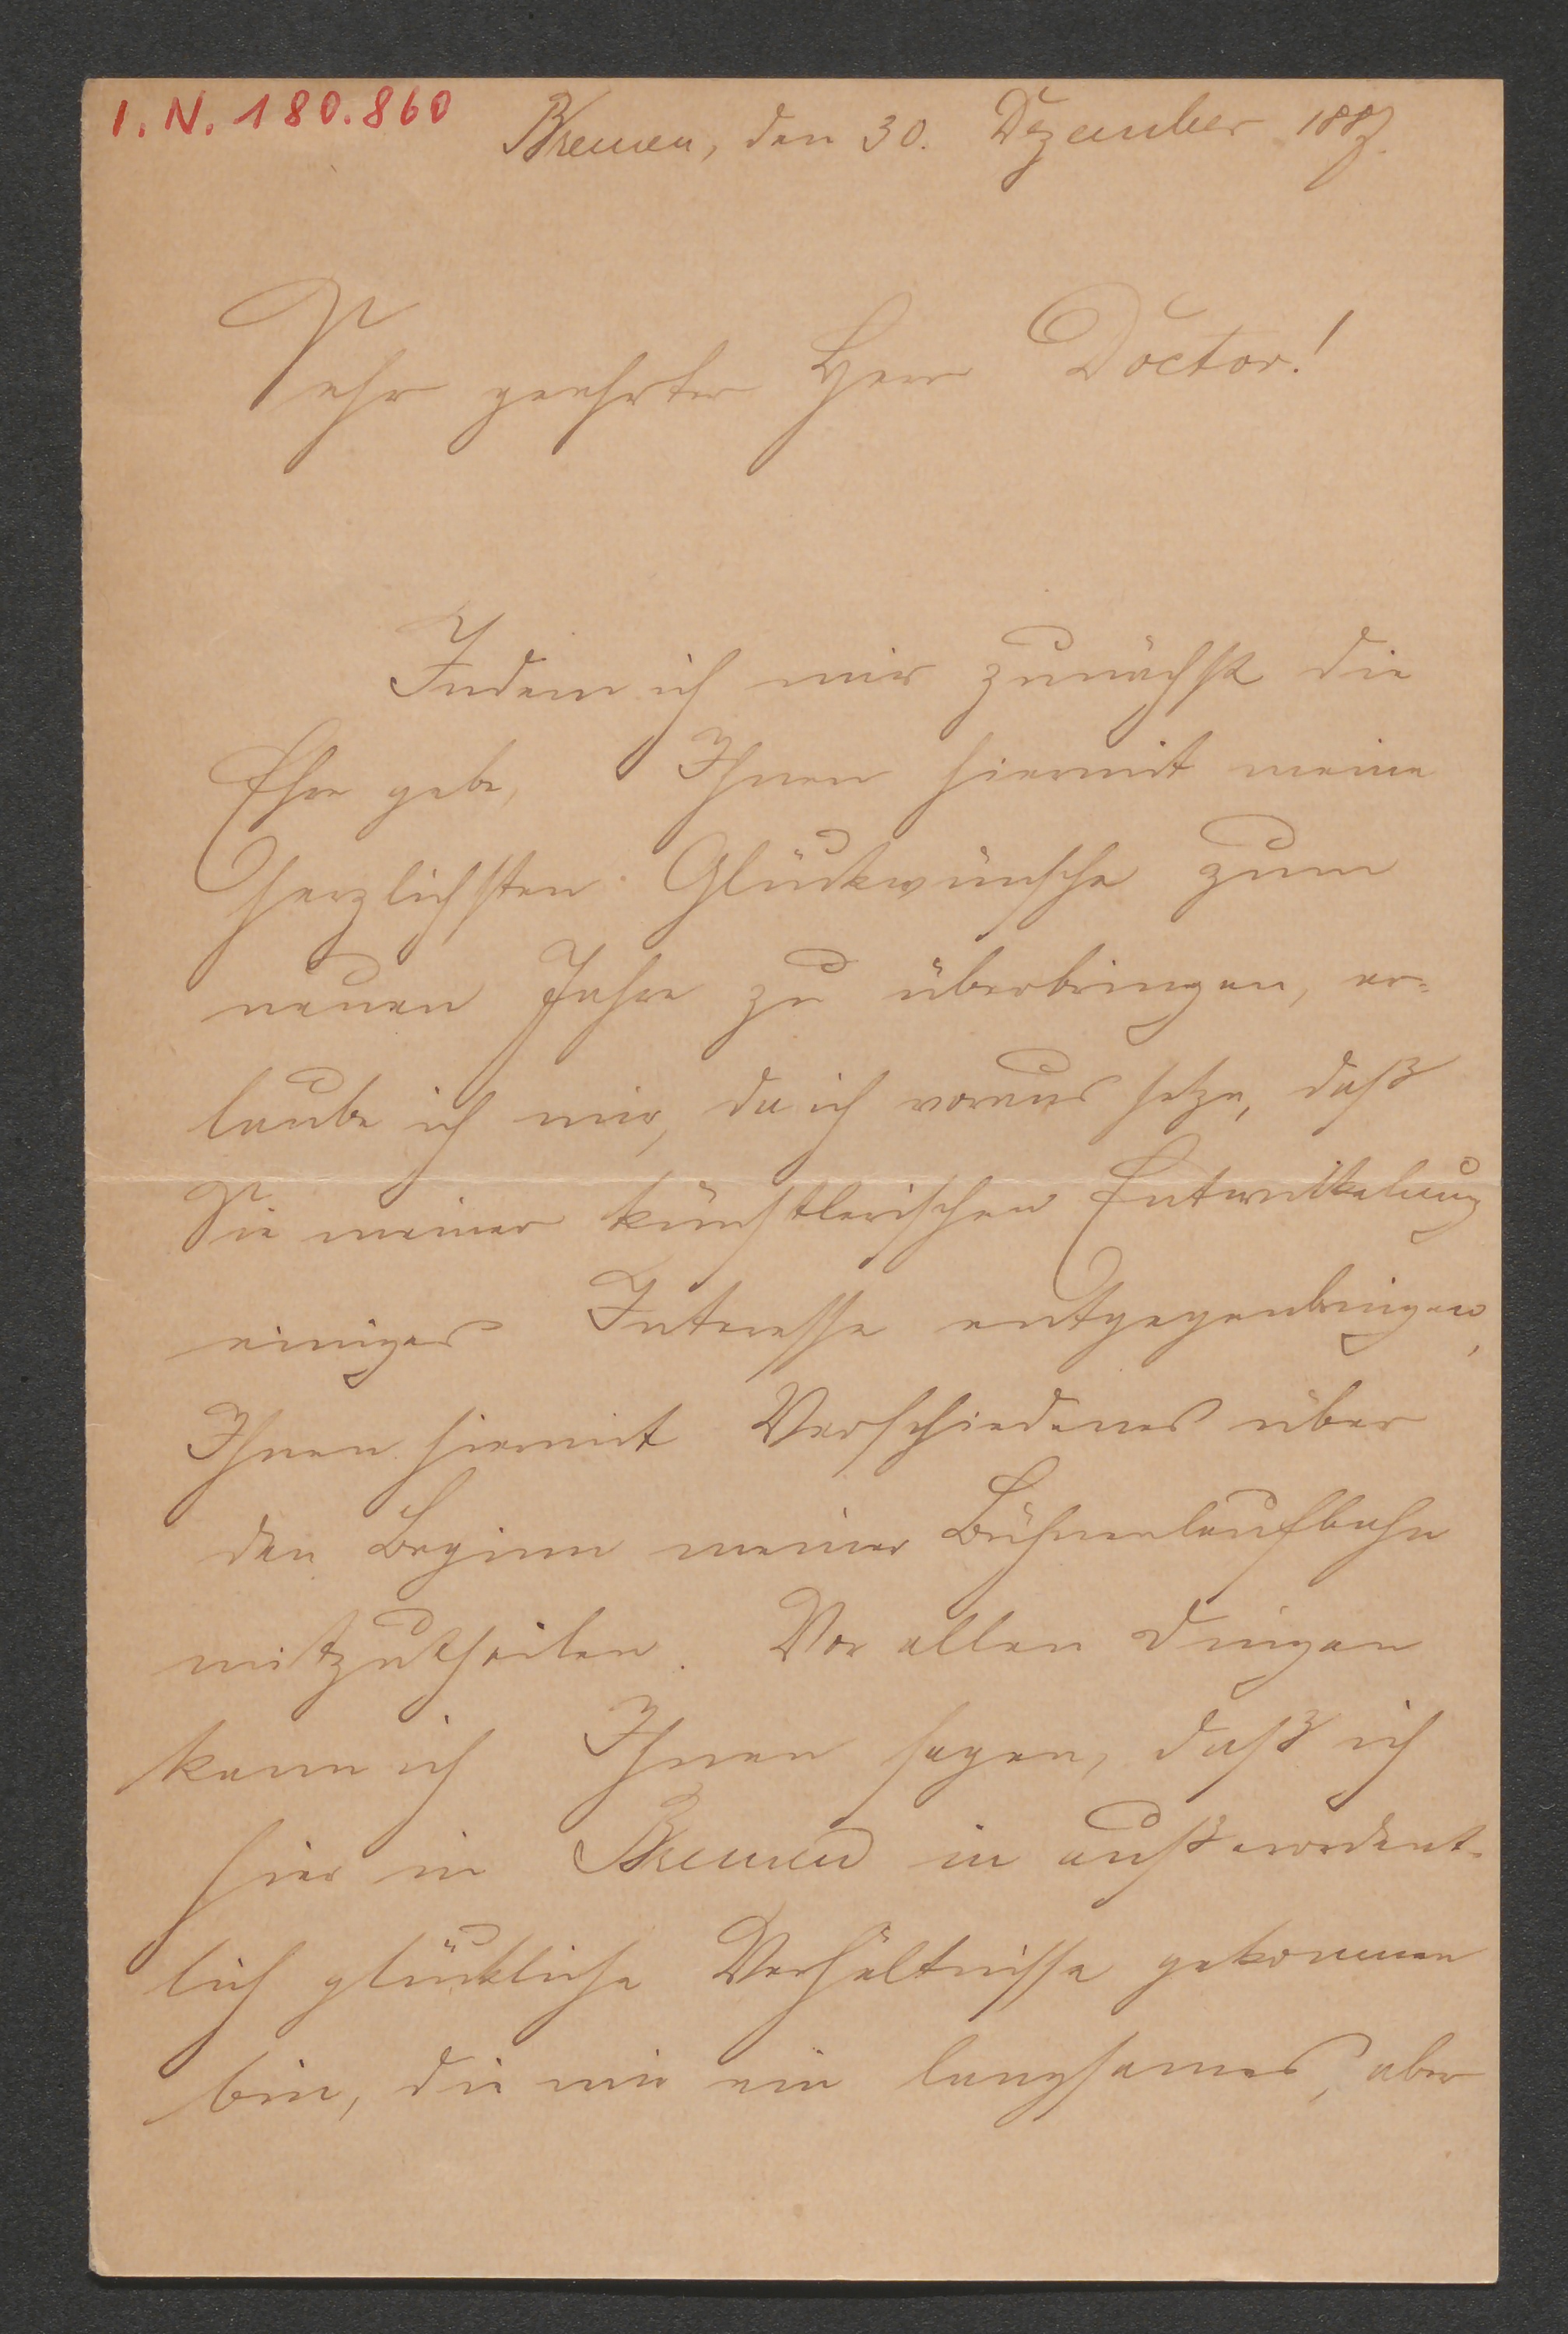 I.N. 180.860
Bremen, den 30. Dezember 1887.
Sehr geehrter Herr Doctor!
Indem ich mir zunächst die
Ehre gebe, Ihnen hiermit meine
herzlichsten Glückwünsche zum
neuen Jahre zu überbringen, er=
laube ich mir, da ich voraus setze, daß
Sie meiner künstlerischen Entwickelung
einiges Interesse entgegenbringen,
Ihnen hiermit Verschiedenes über
den Beginn meiner Bühnenlaufbahn
mitzutheilen. Vor allen Dingen
kann ich Ihnen sagen, daß ich
hier in Bremen in außerordent-
lich glückliche Verhältnisse gekommen
bin, die mir ein langsames, aber